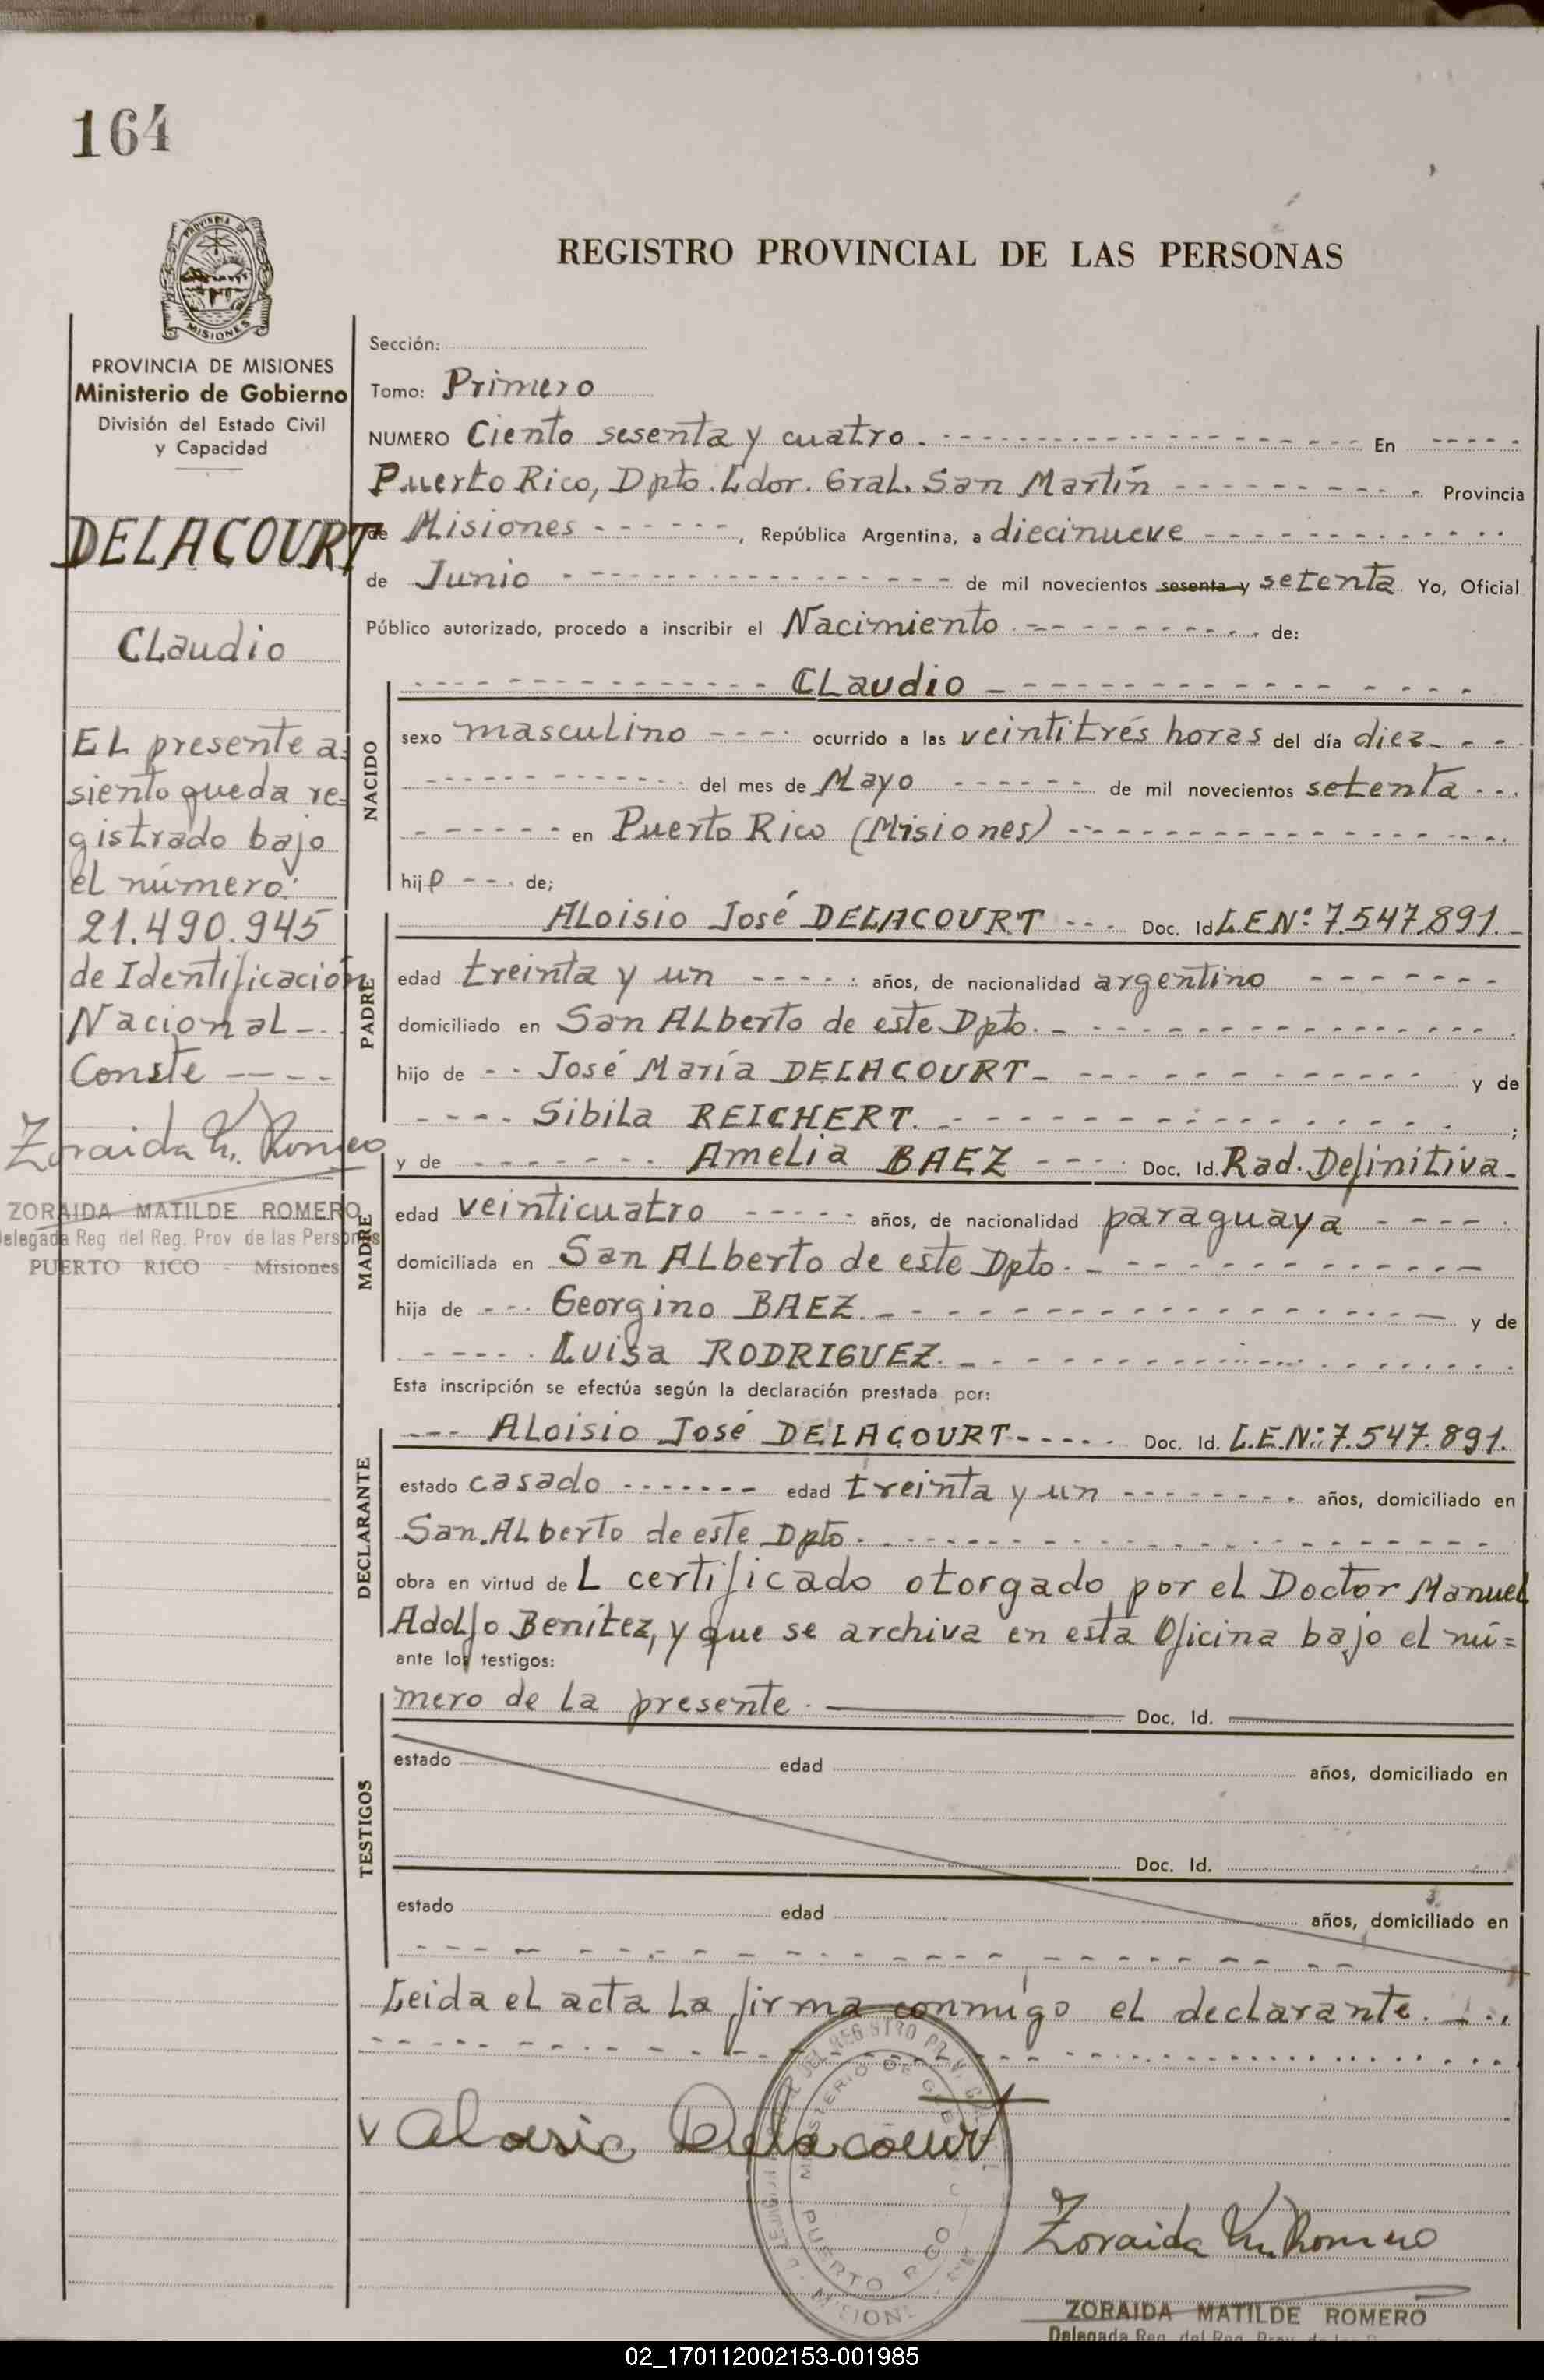 164
PROVINCIA DE
MISIONES
REGISTRO PROVINCIAL DE LAS PERSONAS
PROVINCIA DE MISIONES
Ministerio de Gobierno
División del Estado Civil
y Capacidad
DELACOURT
Claudio
El presente a=
siento queda re=
gistrado bajo
el número:
21.490.945
de Identificación
Nacional
Conste
Zoraida M. Romero
ZORAIDA MATILDE ROMERO
Delegada Reg del Reg. Prov de las Personas
PUERTO RICO - Misiones
Sección:
Tomo: Primero
NUMERO Ciento sesenta y cuatro. En
Puerto Rico, Dpto. Ldor. Gral. San Martín Provincia
de Misiones, República Argentina, a diecinueve
de Junio de mil novecientos sesenta y setenta Yo, Oficial
Público autorizado, procedo a inscribir el Nacimiento de:
NACIDO
Claudio
sexo masculino ocurrido a las veintitrés horas del día diez
del mes de Mayo de mil novecientos setenta
en Puerto Rico (Misiones)
hijo de;
PADRE
Aloisio José DELACOURT Doc. Id L.E.Nº 7.547.891.
edad treinta y un años, de nacionalidad argentino
domiciliado en San Alberto de este Dpto.
hijo de José María DELACOURT y de
Sibila REICHERT. ;
MADRE
y de Amelia BAEZ Doc. Id. Rad. Definitiva
edad veinticuatro años, de nacionalidad paraguaya
domiciliada en San Alberto de este Dpto.
hija de Georgino BAEZ. y de
Luisa RODRIGUEZ.
Esta inscripción se efectúa según la declaración prestada por:
DECLARANTE
Aloisio José DELACOURT Doc. Id. L.E.N.: 7.547.891.
estado casado edad treinta y un años, domiciliado en
San Alberto de este Dpto.
obra en virtud del certificado otorgado por el Doctor Manuel
Adolfo Benítez, y que se archiva en esta Oficina bajo el nú=
ante los testigos:
TESTIGOS
mero de la presente. Doc. Id.
estado edad años, domiciliado en
Doc. Id.
estado edad años, domiciliado en
Leida el acta la firma conmigo el declarante.
REGISTRO
MINISTERIO DE
PUERTO RICO
MISIONES
Delacourt
Zoraida M. Romero
ZORAIDA MATILDE ROMERO
Delegada Reg. del Reg. Prov. de las
02_170112002153-001985